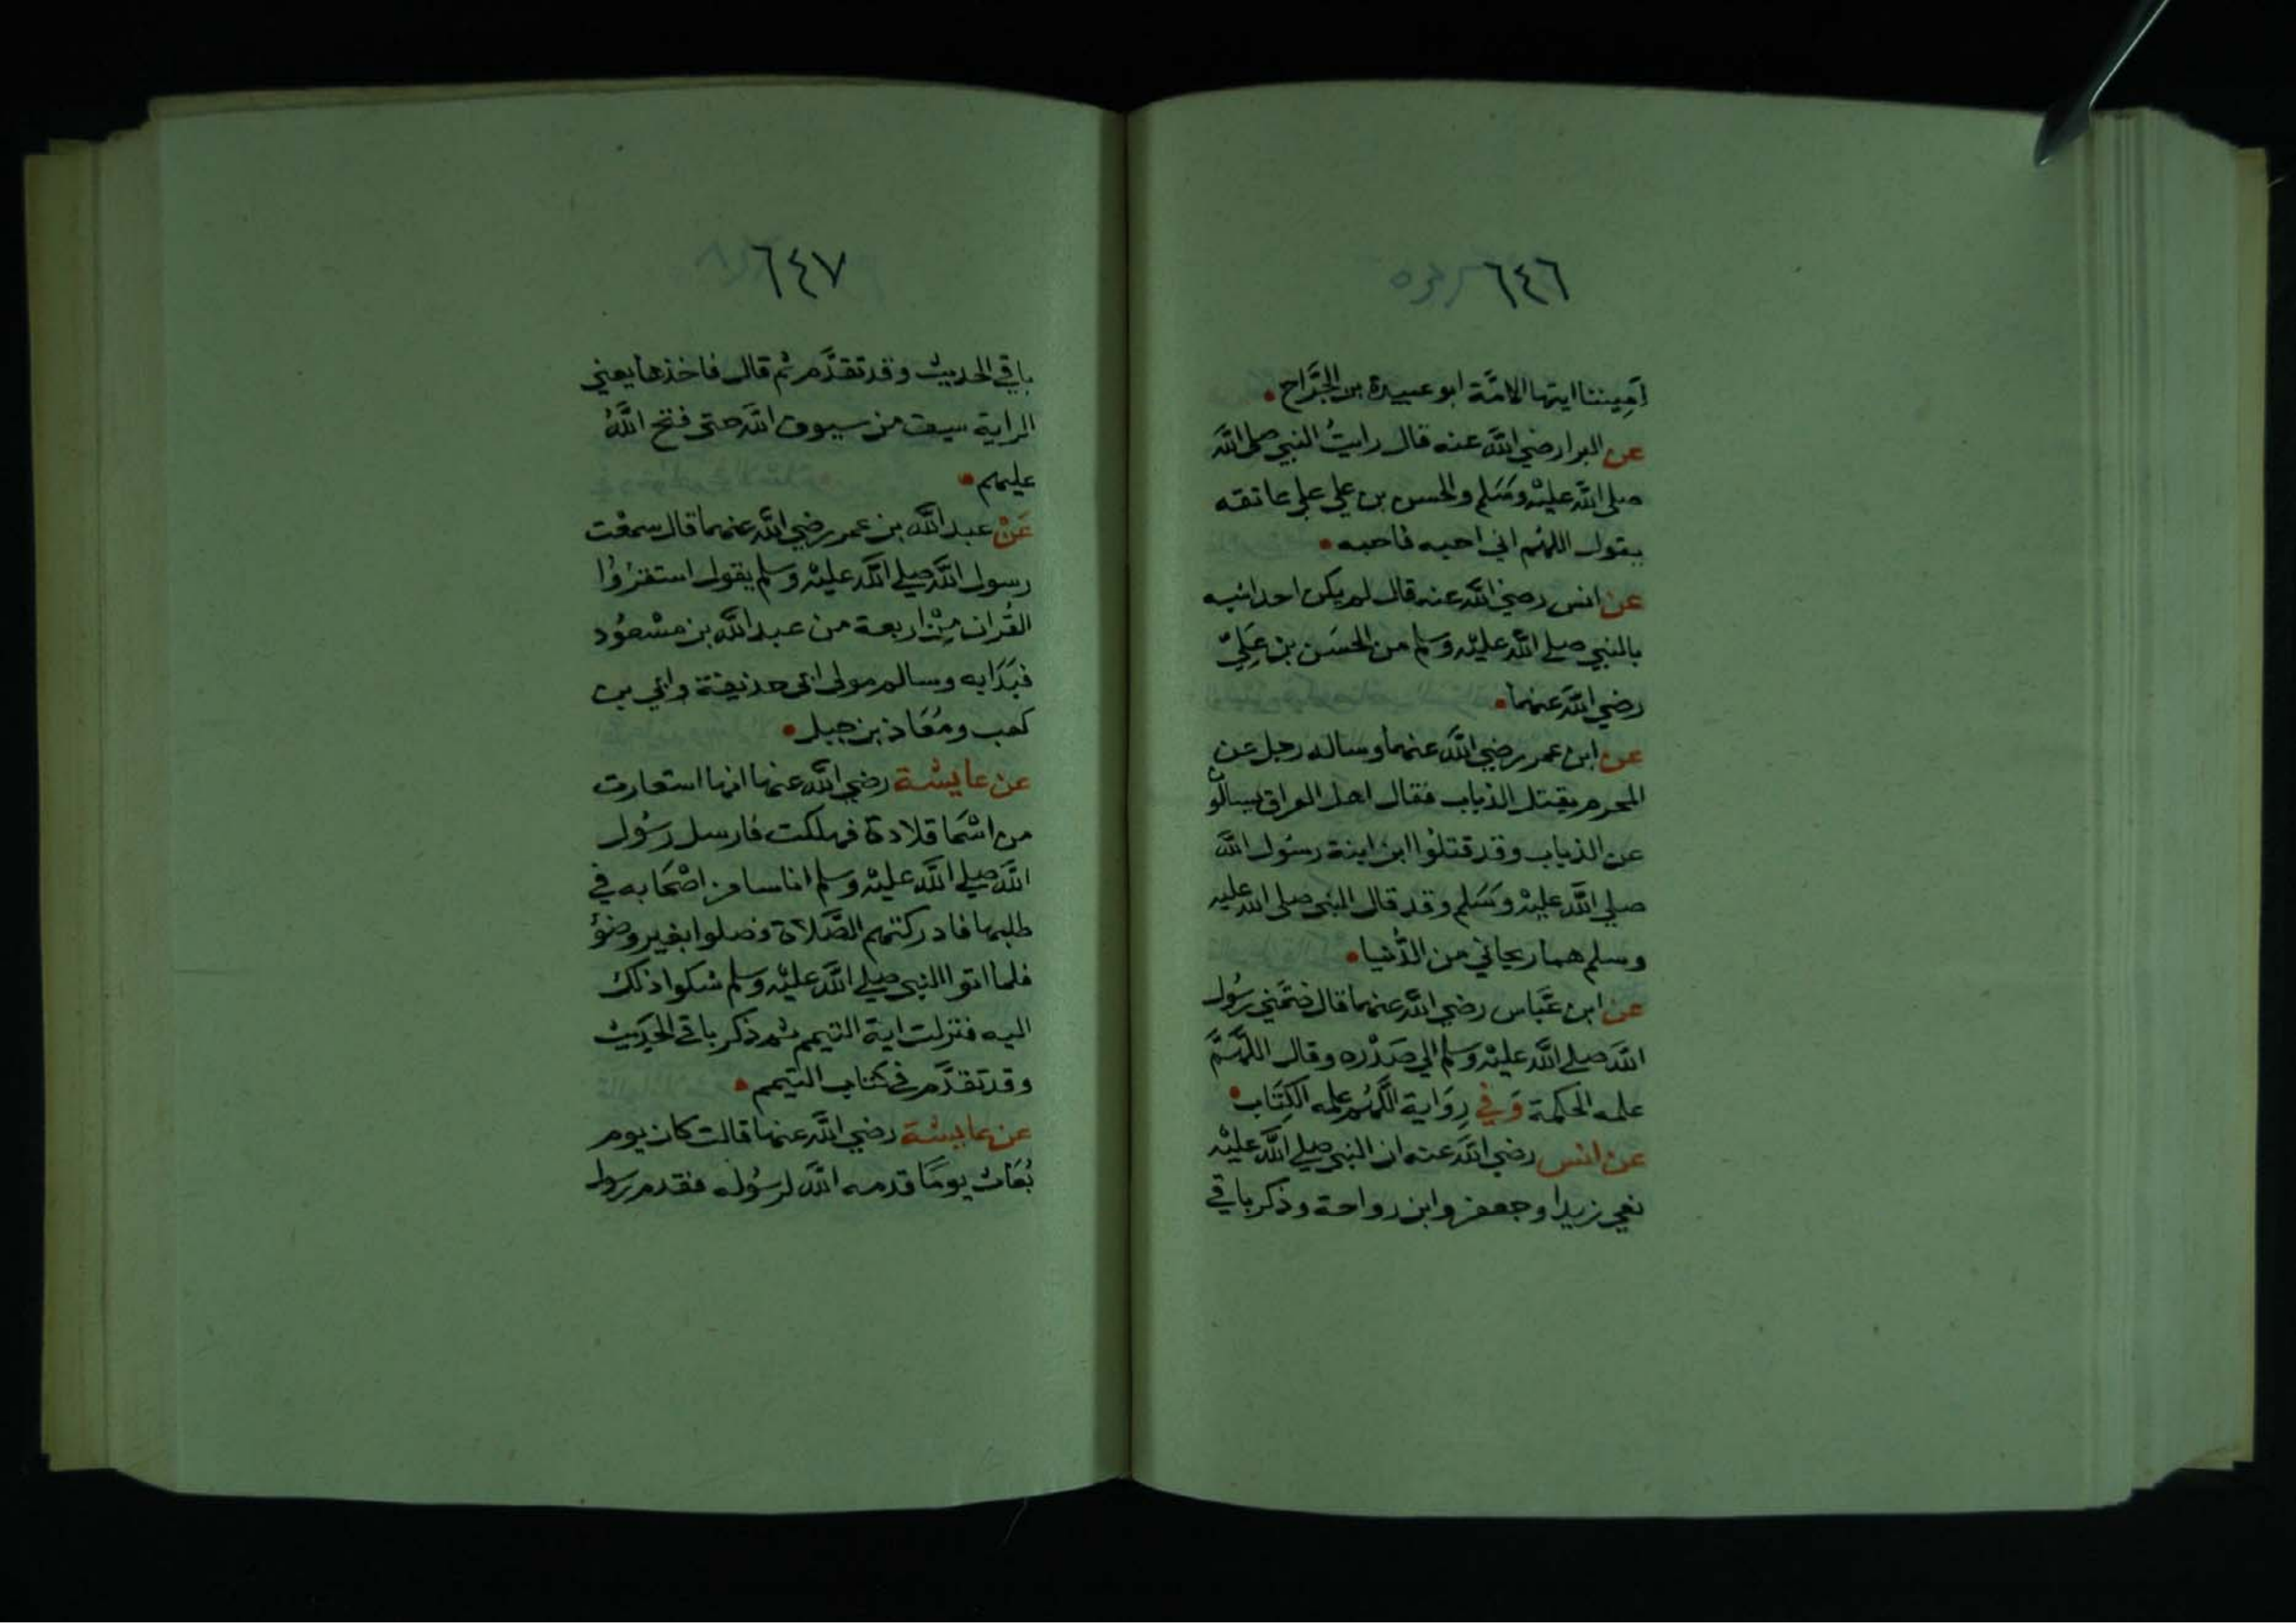 ٦٤٦
اَمِيننا ايتها الامَّة ابو عبيدة بن الجَرَّاح •
عن البرا رضي اللَّه عنه قال رايتُ النبي صلى اللَّه
صلى اللَّه عليْه وسَلم والحسن بن علي على عاتقه
يقول اللهُم اني احبه فاحبه •
عن انس رضي اللَّه عنه قال لم يكن احد اشبه
بالنبي صلى اللَّه عليْه وسلم من الحسَن بن عَلِيّ
رضي اللَّه عنهما •
عن ابن عمر رضي اللَّه عنهما وساله رجل عن
المحرم يقتل الذباب فقال اهل العراق يسالون
عن الذباب وقد قتلوُا ابن ابنة رسُول اللَّه
صلى اللَّه عليْه وَسَلم وقد قال النبي صلى اللَّه عليه
وسلم هما ريحاني من الدُّنيا •
عن ابن عَبَّاس رضي اللَّه عنهما قال ضمَّني رسُول
اللَّه صلى اللَّه عليْه وسلم الي صَدْره وقال اللَّهُمَّ
علمه الحكمة وَفي رِوَاية اللَّهُم علمه الكِتَاب •
عن انس رضي اللَّه عنه ان النبي صلى اللَّه عليْه
نعي زيدا وجعفر وابن رواحة وذكر باقي
٦٤٧
باقي الحديث وقد تقدَّم ثم قال فاخذها يعني
الراية سيف من سيوف اللَّه حتى فتح اللَّهُ
عليهم •
عَنْ عبد اللَّه بن عمر رضي اللَّه عنهما قال سمعْت
رسول اللَّه صلى اللَّه عليْه وسلم يقول استقرُؤا
القُران مِنْ اربعة من عبد اللَّه بن مسْعُود
فبَدَا به وسالم مولى ابي حذيفة وابي بن
كعب ومُعَاذ بن جبل •
عن عايشة رضي اللَّه عنها انها استعارت
من اسْمَا قلادة فهلكت فارسل رسُول
اللَّه صلى اللَّه عليْه وسلم اناسا من اصْحَابه في
طلبها فادركتهم الصَّلاة فصلوا بغير وضؤ
فلما اتوا النبي صلى اللَّه عليْه وسلم شكوا ذلك
اليه فنزلت اية التيمم ثم ذكر باقي الحَدِيث
وقد تقدَّم في كتاب التيمم •
عن عايشة رضي اللَّه عنها قالت كان يوم
بُعَاث يومًا قدمه اللَّه لرسُوله فقدم رسول